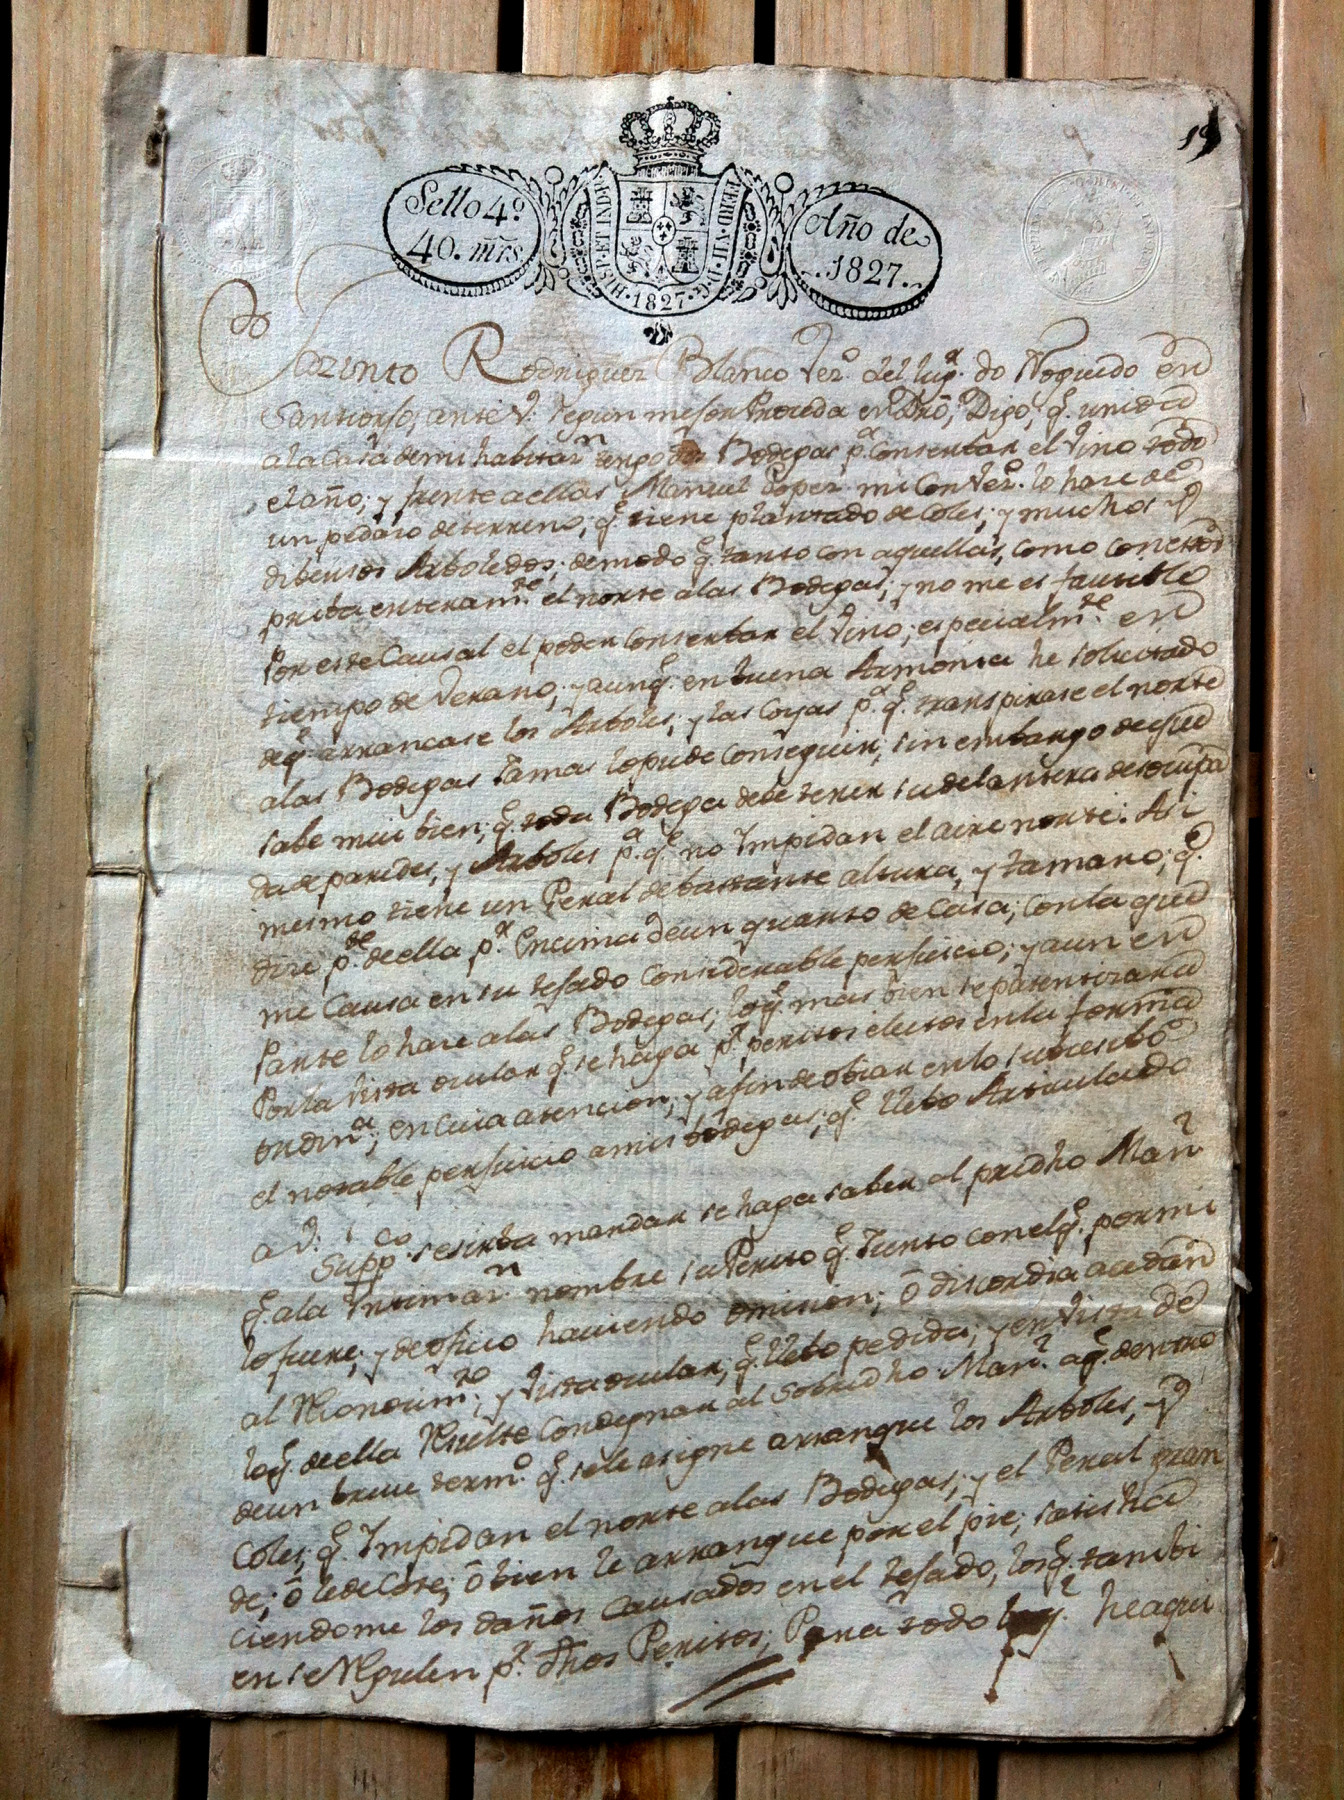 19
Sello 4º
40. mrs.
HISP. ET IND. R.
FERD. VII. D. G.
1827
Año de
1827.
Jazinto Rodriguez Blanco Vezº. del lugʳ. do Noguedo en
ante V. segun mejor Proceda en Dro, Digo, q.ᵉ unida
a la Casa de mi habitaⁿ. tengo dos Bodegas pᵃ. Conserbar el Vino todo
el año; y frente a ellas Manuel Lopez mi Conveº. lo hace de
un pedazo de terreno, q.ᵉ tiene plantado de Coles; y muchos y
dibersos Arboledos; demodo q.ᵉ tanto con aquellas, como con estos
priba enteramᵗᵉ. el norte a las Bodegas; y no me es fautible
Por este Causal el poder Conserbar el Vino; especialmᵗᵉ. en
tiempo de Verano; y aunq.ᵉ en buena Armonia he solicitado
deq.ᵉ arrancase los Arboles; y las Coyas pᵃ. q.ᵉ transpirase el norte
a las Bodegas Jamas lo pude Conseguir; sin embargo de que
sabe mui bien, q.ᵉ toda Bodega debe tener su delantera desocupa
da de paredes, y Arboles pᵃ. q.ᵉ no Impidan el aire norte. Asi
mesmo tiene un Peral de bastante altura, y tamano; q.ᵉ
dice pᵗᵉ. de ella pʳ. Encima de un quarto de Casa; con la que
me Causa en su tejado Considerable perjuicio; y aun en
Parte lo hace a las Bodegas; loq.ᵉ mas bien se patentizara
Por la Vista ocular q.ᵉ se haga pʳ. peritos electos en la forma
ordinᵃ; en Cuia atencion; y a fin de obiar en lo subcesibo
el notable perjuicio a mis bodegas; q.ᵉ llebo Articulado
a V.
Suppᶜᵒ. se sirba mandar se haga saber al predho Manˡ
q.ᵉ a la Intimaⁿ. nombre su Perito q.ᵉ Junto con el q.ᵉ por mi
lo fuere; y de oficio haciendo omision; ó discordia acudan
al Reconocimᵗᵒ; y Vista ocular, q.ᵉ llebo pedida; y en Vista de
loq.ᵉ de ella Resulte Condegnar al sobredho Manˡ. aq.ᵉ dentro
de un breve termº. q.ᵉ se le asigne arranque los Arboles, y
Coles; q.ᵉ Impidan el norte a las Bodegas; y el Peral gran
de; ó le decote; ó bien le arranque por el pie; satisfa
ciendome los daños Causados en el tejado, los q.ᵉ tambi
en se Regulen pʳ. dhos Peritos; Para todo he aqui